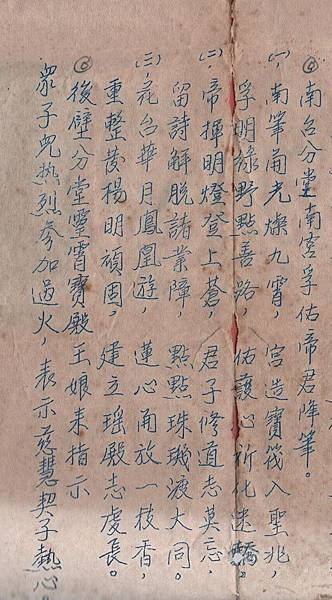 ◎南台分堂南宮孚佑帝君降筆。
(一),南筆開光燦九霄,宮造寶筏入聖兆,
孚明綠野點善路,佑護心祈化迷橋。
(二),帝揮明燈登上蒼,君子修道志莫忘,
留詩解脫諸業障,點點珠璣渡大同。
(三),花台華月鳳凰遊,蓮心開放一枝香,
重整發楊明頑固,建立瑶殿志虔長。
◎後壁分堂靈霄寶殿王娘来指示
眾子兒热烈参加過火,表示慈慧契子熱心。